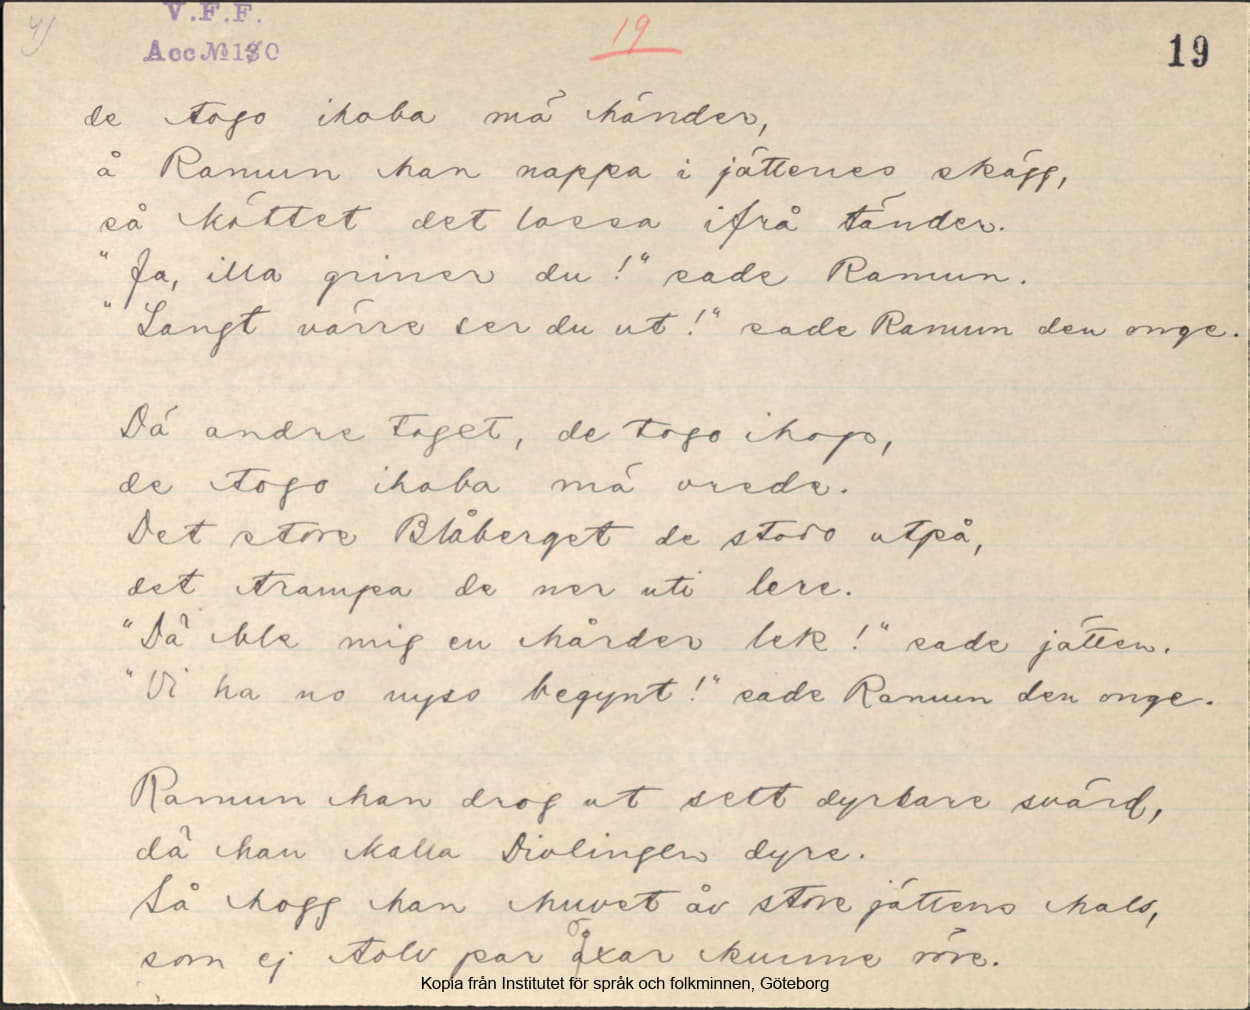 4)
V.F.F.
Acc № 180
19
19
de togo ihoba mä händer,
å Ramun han nappa i jättenes skägg,
så köttet det lossa ifrå tänder.
"Ja, illa griner du!" sade Ramun.
"Langt värre ser du ut!" sade Ramun den onge.
Dä andre taget, de togo ihop,
de togo ihoba mä vrede.
Det store Blåberget de stodo utpå,
det trampa de ner uti lere.
"Dä ble mig en hårder lek!" sade jätten.
"Vi ha no nyso begynt!" sade Ramun den onge.
Ramun han drog ut sett dyrbare svärd,
dä han kalla Divlingen dyre.
Så hogg han huvet åv store jättens hals,
som ej tolv par åxar kunne röre.
Kopia från Institutet för språk och folkminnen, Göteborg